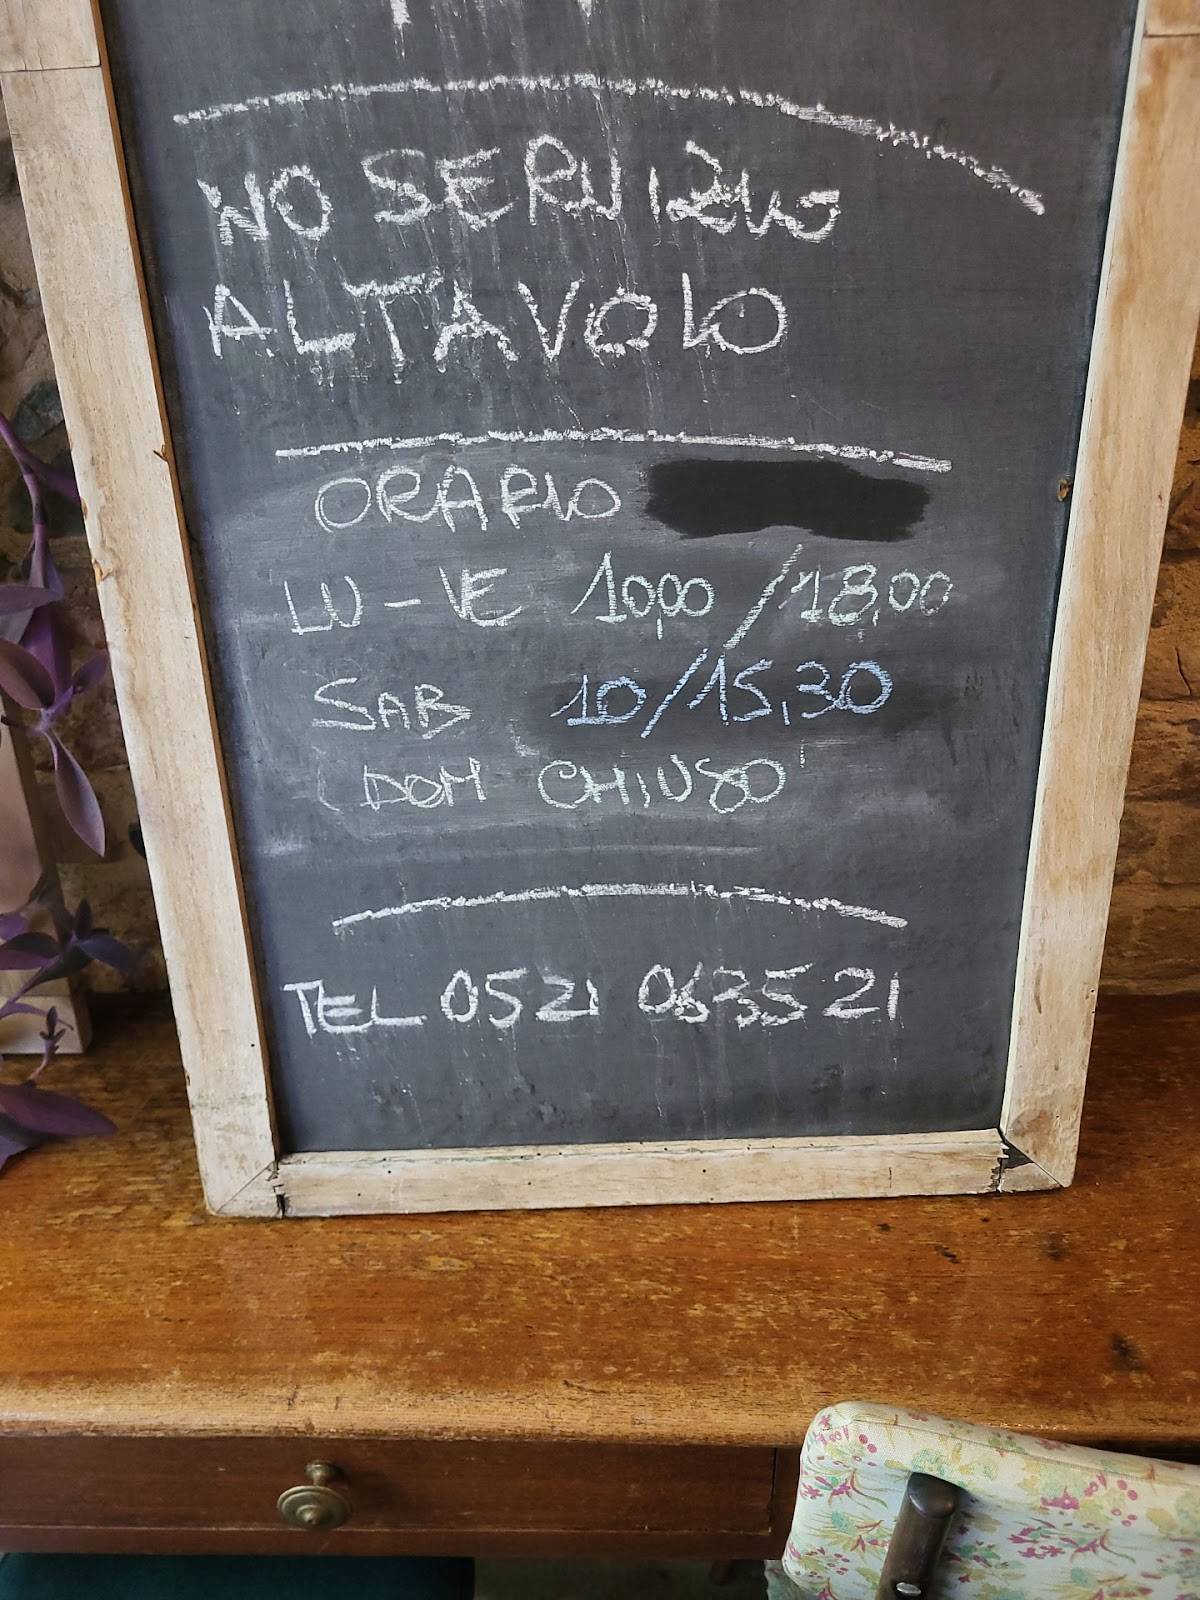 NO SERVIZIO
AL TAVOLO
ORARIO
LU-VE 10,00/18,00
SAB 10/15,30
DOM CHIUSO
TEL 0521 063521